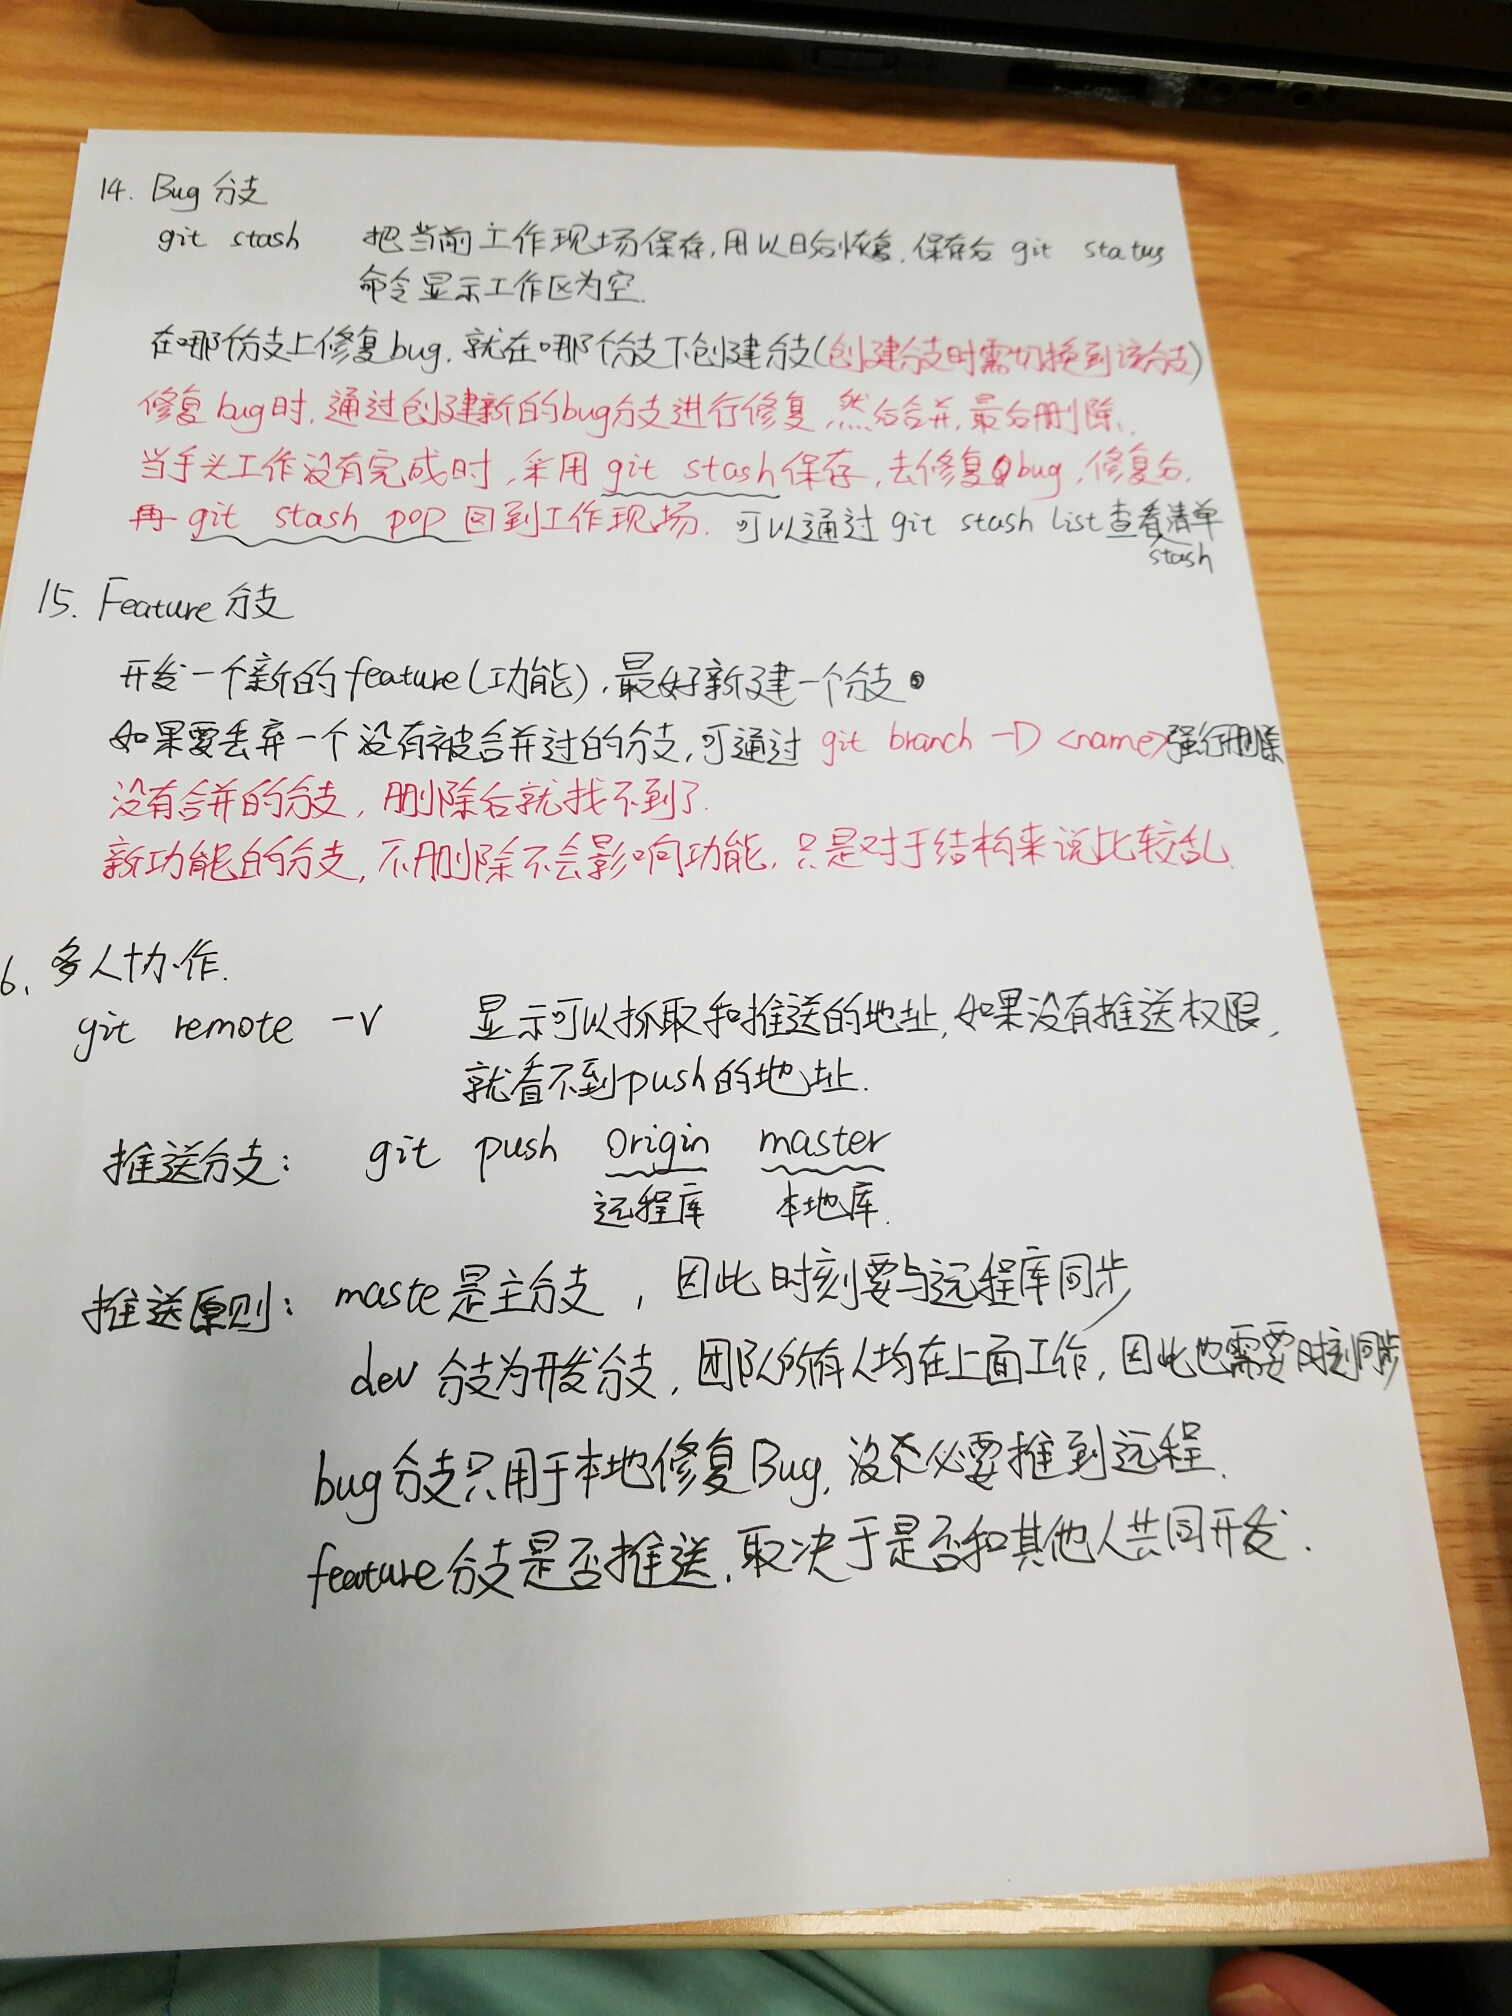 14. Bug 分支
git stash 把当前工作现场保存,用以日后恢复.保存后 git status
命令显示工作区为空.
在哪个分支上修复bug.就在哪个分支下创建分支(创建分支时需切换到该分支)
修复bug时,通过创建新的bug分支进行修复,然后合并,最后删除.
当手头工作没有完成时,采用git stash保存,去修复bug,修复后,
再git stash pop回到工作现场. 可以通过git stash list查看清单
stash
15. Feature 分支
开发一个新的feature(功能),最好新建一个分支.
如果要丢弃一个没有被合并过的分支,可通过 git branch -D <name>强行删除
没有合并的分支,删除后就找不到了.
新功能的分支,不删除不会影响功能,只是对于结构来说比较乱.
6. 多人协作.
git remote -v 显示可以抓取和推送的地址,如果没有推送权限,
就看不到push的地址.
推送分支: git push origin master
远程库 本地库.
推送原则: maste是主分支,因此时刻要与远程库同步
dev 分支为开发分支,团队所有人均在上面工作,因此也需要时刻同步
bug分支只用于本地修复Bug,没必要推到远程.
feature分支是否推送,取决于是否和其他人共同开发.